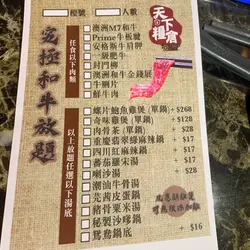 檯號 人數
天下糧倉
究極和牛放題
任食以下肉類
澳洲M7和牛
Prime牛板腱
安格斯牛肩胛
一級肥牛
封門柳
澳洲和牛金錢展
牛𦟌片
鮮牛肉
以上放題任選以下湯底
螺片鮑魚雞煲(單鍋) + $268
奇味雞煲(單鍋) + $128
肉骨茶(單鍋) + $28
重慶翡翠椒麻辣鍋 + $17
四川紅麻辣鍋 + $17
蕃茄薯米湯 + $17
峏沙湯 + $17
潮汕牛骨湯
芫茜皮蛋鍋
豬骨粟米湯
秘製沙嗲鍋
鴛鴦鍋底 + $16